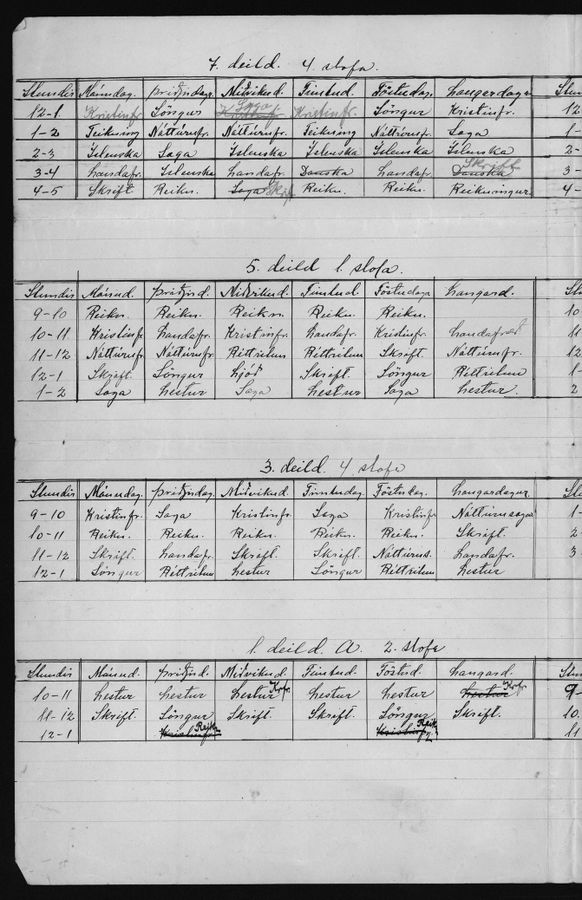 7. deild 4 stofa.
Stundir Mánudag. þriðjudagr Miðvikud. Fimtud. Föstudag. Laugardagr Stun
Saga
12-1 Kristinfr. Söngur Kristinfr. Kristinfr. Söngur Kristinfr. 12
1-2 Teikning Náttúrufr. Náttúrufr. Teikning Náttúrufr. Saga 1-
2-3 Íslenska Saga Íslenska Íslenska Íslenska Íslenska 2-
Skrift
3-4 Landafr. Íslenska Landafr. Danska Landafr. Danska 3-
4-5 Skrift Reikn. Saga Skrift Reikn. Reikn. Reikningur 4-
5. deild 1. stofa.
Stundir Mánud. þriðjud. Miðvikud. Fimtud. Föstudag Laugard. Stun
9-10 Reikn. Reikn. Reikn. Reikn. Reikn. 10
10-11 Kristinfr. Landafr. Kristinfr. Landafr. Kristinfr. Landafræð 11
11-12 Náttúrufr. Náttúrufr. Réttritun Réttritun Skrift. Náttúrufr. 12
12-1 Skrift. Söngur Ljóð Skrift. Söngur Réttritun 1-
1-2 Saga Lestur Saga Lestur Saga Lestur. 2
3. deild. 4 stofa
Stundir Mánudag. þriðjudag. Miðvikud. Fimtudag. Föstudag. Laugardagur Stu
9-10 Kristinfr. Saga Kristinfr. Saga Kristinfr. Náttúrusaga 1-
10-11 Reikn. Reikn. Reikn. Reikn. Reikn. Skrift. 2-
11-12 Skrift. Landafr. Skrift. Skrift. Náttúrus. Landafr. 3
12-1 Söngur Réttritun Lestur Söngur Réttritun Lestur
1. deild. A. 2. stofa
Stundir Mánud. þriðjud. Miðvikud. Fimtud. Föstud. Laugard. Stun
10-11 Lestur Lestur Lestur Krfr. Lestur Lestur Lestur Krfr. 9-
11-12 Skrift. Söngur Skrift. Skrift. Söngur Skrift. 10.
12-1 Kristinfr. Reikn. Kristinfr. Reikn. 11